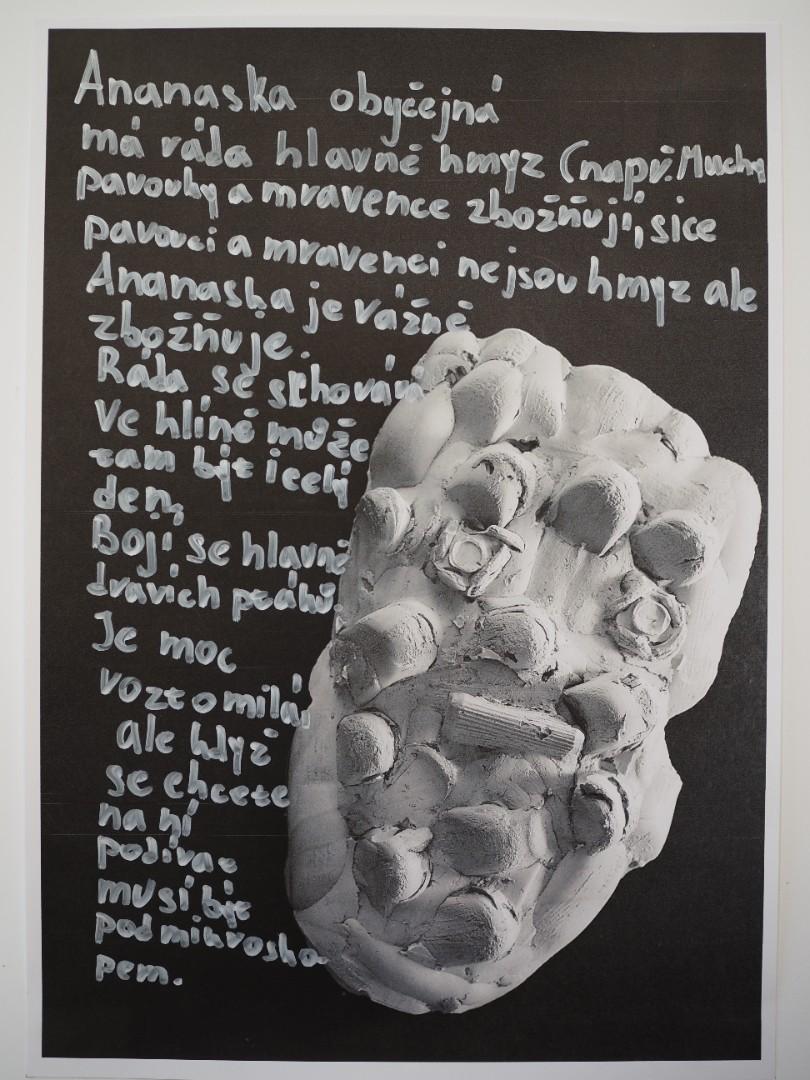 Ananaska obyčejná
má ráda hlavně hmyz (např. Muchy
pavouky a mravence zbožňují, sice
pavouci a mravenci nejsou hmyz ale
Ananaska je vážně
zbožňuje.
Ráda se skhovává
ve hlíně může
tam být i celý
den,
Bojí se hlavně
dravích ptáků.
Je moc
voztomilá,
ale když
se chcete
na ní
podívat
musí být
pod mikrosko
pem.